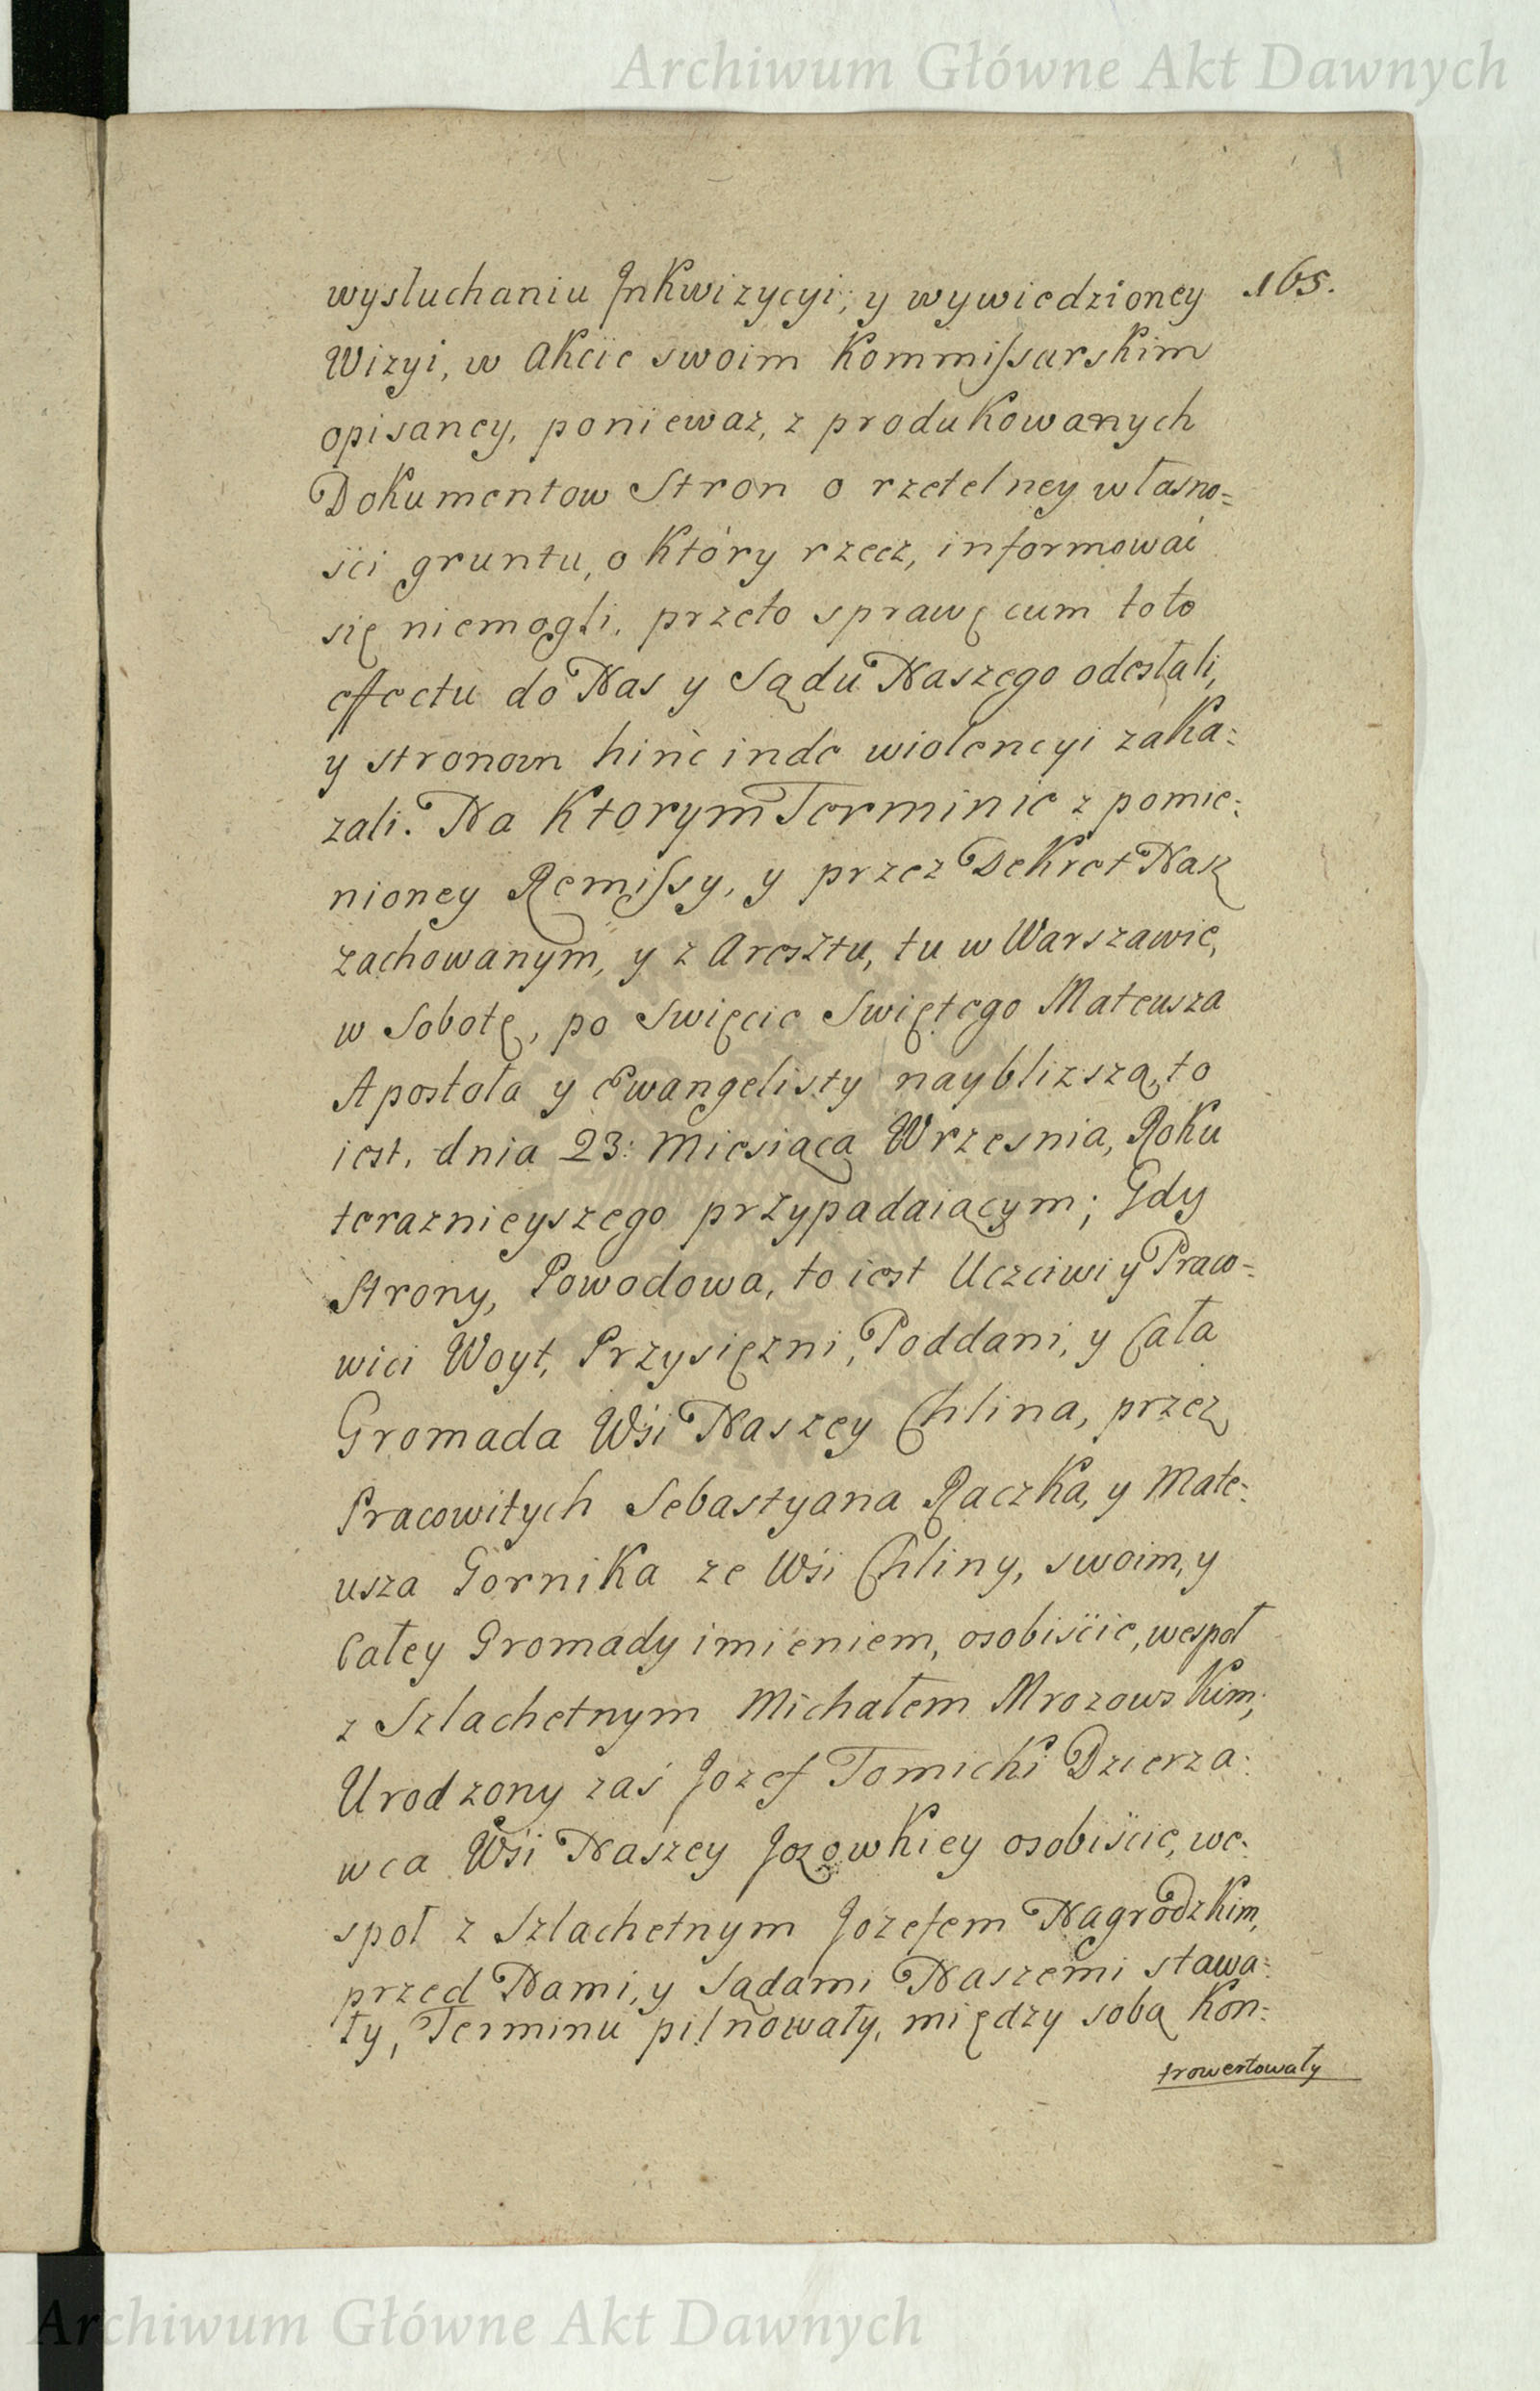 Archiwum Główne Akt Dawnych
165.
wysluchaniu Jnkwizycyi, y wywiedzioney
Wizyi, w Akcie swoim Kommissarskim
opisaney, poniewaz, z produkowanych
Dokumentow Stron o rzetelney własno=
ści gruntu, o który rzecz, informować
się niemogli, przeto sprawę cum toto
effectu do Nas y Sądu Naszego odesłali,
y stronom hinc inde wiolencyi zaka=
zali. Na Ktorym Terminie z pomie=
nioney Remissy, y przez Dekret Nasz
zachowanym, y z Aresztu, tu w Warszawie,
w Sobotę, po Swięcie Swiętego Mateusza
Apostoła y Ewangelisty nayblizszą, to
iest, dnia 23: Miesiąca Wrzesnia, Roku
teraznieyszego przypadaiącym; Gdy
Strony, Powodowa, to iest Uczciwi y Praco=
wici Woyt, Przysięzni, Poddani, y Cała
Gromada Wśi Naszey Chlina, przez
Pracowitych Sebastyana Raczka, y Mate=
usza Gornika ze Wśi Chliny, swoim, y
Całey Gromady imieniem, osobiście, wespoł
z Szlachetnym Michałem Mrozowskim;
Urodzony zaś Jozef Tomicki Dzierza=
wca Wśi Naszey Jozowkiey osobiście, we=
społ z Szlachetnym Jozefem Nagrodzkim,
przed Nami, y Sądami Naszemi stawa=
ły, Terminu pilnowały, między sobą Kon=
trowertowały
Archiwum Główne Akt Dawnych